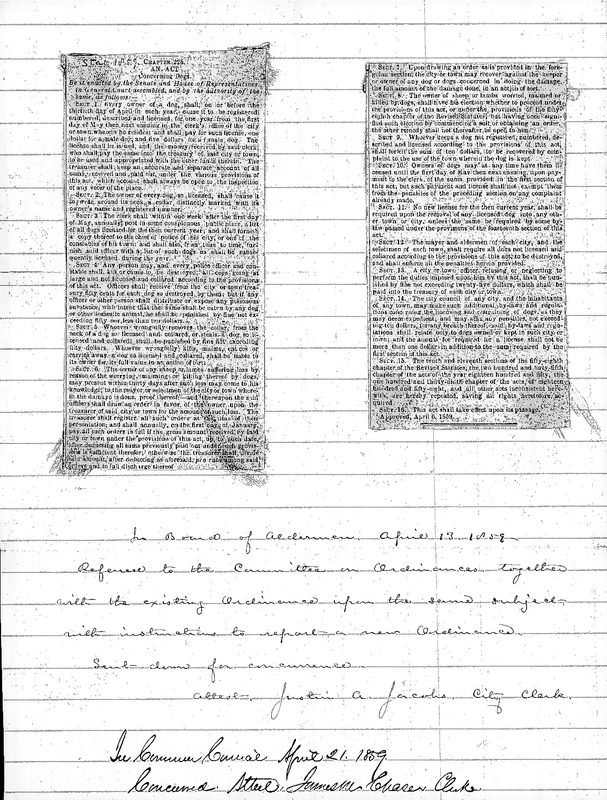 Stat. 1859. CHAPTER 225.
AN ACT
Concerning Dogs.
Be it enacted by the Senate and House of Representatives,
in General Court assembled, and by the authority of the
same, as follows:
SECT. 1. Every owner of a dog, shall, on or before the
thirtieth day of April in each year, cause it to be registered,
numbered, described and licensed, for one year from the first
day of May then next ensuing, in the clerk's office of the city
or town wherein he resides, and shall pay for such license, one
dollar for a male dog, and five dollars for a female dog. The
license shall be issued, and the money received by said clerk,
who shall pay the same into the treasury of said city or town,
to be used and appropriated with the other funds therein. The
treasurer shall keep an accurate and separate account of all
sums received and paid out, under the various provisions of
this act, which account shall always be open to the inspection
of any voter of the place.
SECT. 2. The owner of every dog, so licensed, shall cause it
to wear around its neck a collar, distinctly marked with its
owner's name and registered number.
SECT. 3. The clerk shall within one week after the first day
of May, annually, post in some conspicuous public place, a list
of all dogs licensed for the then current year, and shall furnish
a copy thereof to the chief of police of his city, or one of the
constables of his town; and shall also, from time to time, fur-
nish said officer with a list of such dogs as shall be subse-
quently licensed during the year.
SECT. 4. Any person may, and every police officer and con-
stable shall, kill or cause to be destroyed, all dogs going at
large and not licensed and collared according to the provisions
of this act. Officers shall receive from the city or town treas-
ury fifty cents for each dog so destroyed by them; but if any
officer or other person shall distribute or expose any poisonous
substance, with intent that the same shall be eaten by any dog
or other domestic animal, he shall be punished by fine not ex-
ceeding fifty nor less than twenty dollars.
SECT. 5. Whoever wrongfully removes the collar from the
neck of a dog so licensed and collared, or steals a dog so li-
censed and collared, shall be punished by fine not exceeding
fifty dollars. Whoever wrongfully kills, maims, entices or
carries away a dog so licensed and collared, shall be liable to
its owner for its full value in an action of tort.
SECT. 6. The owner of any sheep or lambs suffering loss by
reason of the worrying, maiming or killing thereof by dogs,
may present within thirty days after such loss may come to his
knowledge, to the mayor or selectmen of the city or town where-
in the damage is done, proof thereof; and thereupon the said
officers shall draw an order in favor of the owner upon the
treasurer of said city or town for the amount of such loss. The
treasurer shall register all such orders at the time of their
presentation, and shall annually, on the first day of January,
pay all such orders in full if the gross amount received by said
city or town under the provisions of this act, up to such date,
after deducting all sums previously paid out under such provis-
ions is sufficient therefor; otherwise the treasurer shall divide
said amount, after deducting as aforesaid, pro rata among said
orders and in full discharge thereof.
SECT. 7. Upon drawing an order as is provided in the fore-
going section, the city or town may recover against the keeper
or owner of any dog or dogs concerned in doing the damage,
the full amount of the damage done, in an action of tort.
SECT. 8. The owner of sheep or lambs worried, maimed or
killed by dogs, shall have his election whether to proceed under
the provisions of this act, or under the provisions of the fifty-
eighth chapter of the Revised Statutes; but having once signi-
fied such election by commencing a suit or obtaining an order,
the other remedy shall not thereafter be open to him.
SECT. 9. Whoever keeps a dog not registered, numbered, de-
scribed and licensed according to the provisions of this act,
shall forfeit the sum of ten dollars, to be recovered by com-
plaint to the use of the town wherein the dog is kept.
SECT. 10. Owners of dogs may at any time have them li-
censed until the first day of May then next ensuing, upon pay-
ment to the clerk, of the sums provided in the first section of
this act; but such payment and license shall not exempt them
from the penalties of the preceding section on any complaint
already made.
SECT. 11. No new license for the then current year, shall be
required upon the removal of any licensed dog into any oth-
er town or city, unless the same be required by some by-
law passed under the provisions of the fourteenth section of this
act.
SECT. 12. The mayor and aldermen of each city, and the
selectmen of each town, shall require all dogs not licensed and
collared according to the provisions of this act to be destroyed,
and shall enforce all the penalties herein provided.
SECT. 13. A city or town officer, refusing or neglecting to
perform the duties imposed upon him by this act, shall be pun-
ished by fine not exceeding twenty-five dollars, which shall be
paid into the treasury of such city or town.
SECT. 14. The city council of any city, and the inhabitants
of any town, may make such additional by-laws and regula-
tions concerning the licensing and restraining of dogs, as they
may deem expedient, and may affix any penalties, not exceed-
ing ten dollars, for any breach thereof; said by-laws and regu-
lations shall relate only to dogs owned or kept in such city or
town; and the annual fee required for a license shall not be
more than one dollar in addition to the same required by the
first section of this act.
SECT. 15. The tenth and eleventh sections of the fifty-eighth
chapter of the Revised Statutes, the two hundred and forty-fifth
chapter of the acts of the year eighteen hundred and fifty, the
one hundred and thirty-ninth chapter of the acts of eighteen
hundred and fifty-eight, and all other acts inconsistent here-
with, are hereby repealed, saving all rights heretofore ac-
quired.
SECT. 16. This act shall take effect upon its passage.
Approved, April 6, 1859.
In Board of Aldermen. April 13. 1859.
Referred to the Committee on Ordinances together
with the existing Ordinance upon the same subject,
with instructions to report a new Ordinance.
Sent down for concurrence.
attest. Justin A. Jacobs. City Clerk.
In Common Council April 21. 1859.
Concurred Attest. Chaser Clerk